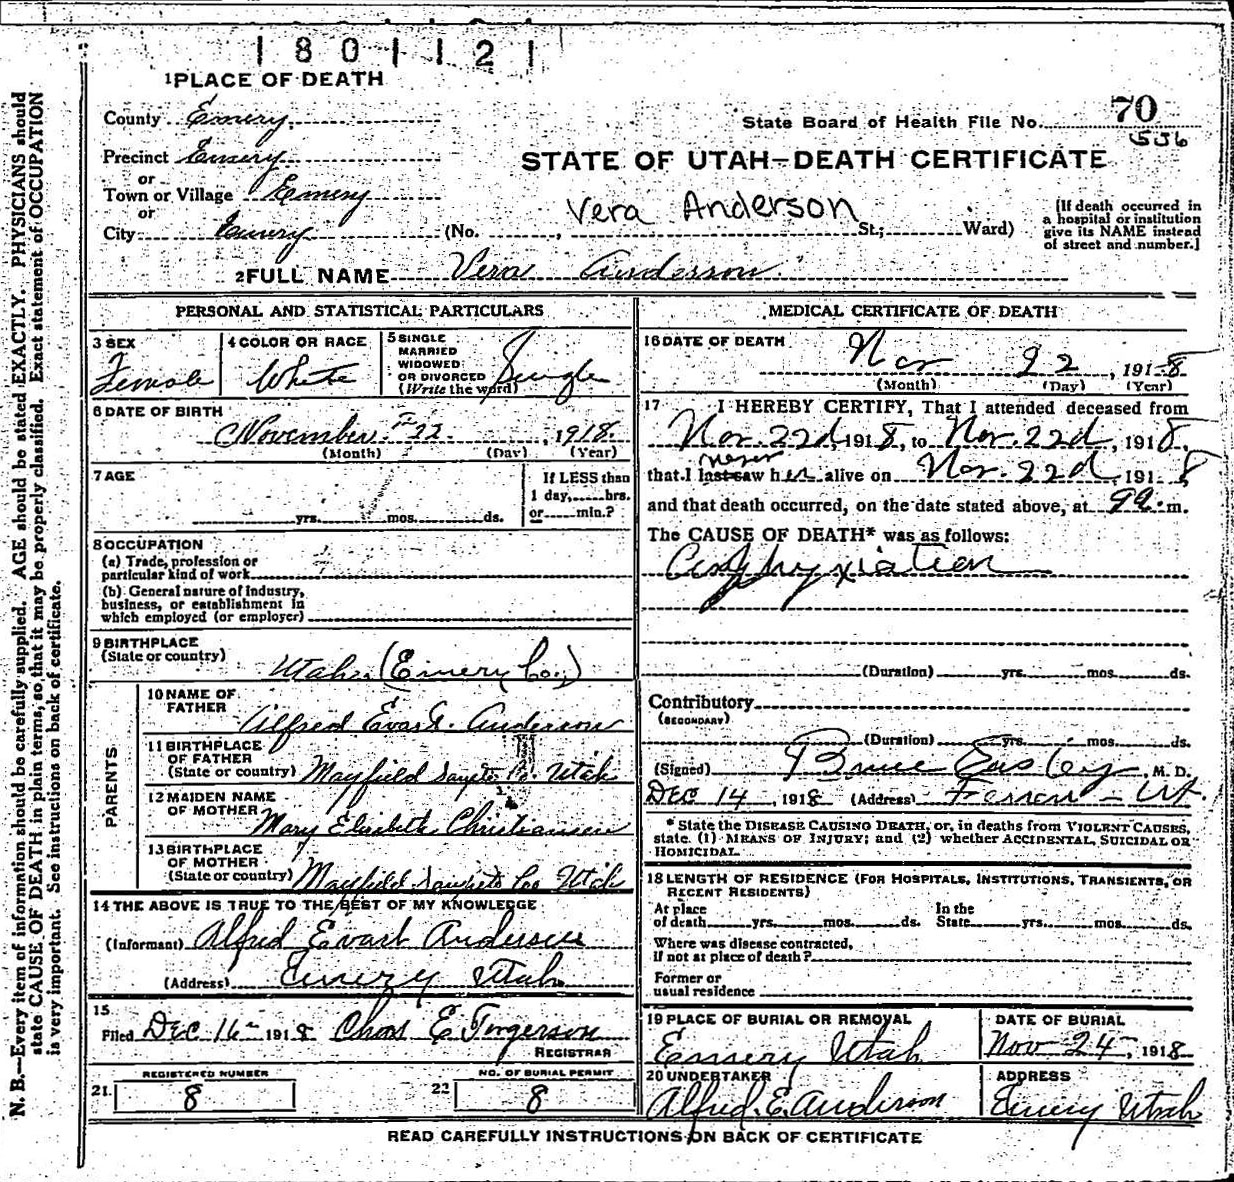 1801121
1 PLACE OF DEATH
County Emery.
State Board of Health File No. 70
536
Precinct Emery
STATE OF UTAH—DEATH CERTIFICATE
or
Town or Village Emery
or
Vera Anderson
City Emery (No. , St.; Ward)
(If death occurred in
a hospital or institution
give its NAME instead
of street and number.)
2 FULL NAME Vera Anderson
PERSONAL AND STATISTICAL PARTICULARS
3 SEX
Female
4 COLOR OR RACE
White
5 SINGLE
MARRIED
WIDOWED
OR DIVORCED
(Write the word)
Single
6 DATE OF BIRTH
November 22 , 1918.
(Month) (Day) (Year)
7 AGE
yrs. mos. ds.
If LESS than
1 day, hrs.
or min.?
8 OCCUPATION
(a) Trade, profession or
particular kind of work
(b) General nature of industry,
business, or establishment in
which employed (or employer)
9 BIRTHPLACE
(State or country) Utah. (Emery Co.,)
PARENTS
10 NAME OF
FATHER
Alfred Evart Anderson
11 BIRTHPLACE
OF FATHER
(State or country) Mayfield Sanpete Co. Utah
12 MAIDEN NAME
OF MOTHER Mary Elizabeth Christiansen
13 BIRTHPLACE
OF MOTHER
(State or country) Mayfield Sanpete Co Utah
14 THE ABOVE IS TRUE TO THE BEST OF MY KNOWLEDGE
(Informant) Alfred Evart Anderson
(Address) Emery Utah
15
Filed Dec 16 - 1918 Chas E
REGISTRAR
21. REGISTERED NUMBER
8
22 NO. OF BURIAL PERMIT
8
MEDICAL CERTIFICATE OF DEATH
16 DATE OF DEATH
Nov 22 , 1918
(Month) (Day) (Year)
17 I HEREBY CERTIFY, That I attended deceased from
Nov. 22d, 1918, to Nov. 22d, 1918,
never
that I last saw her alive on Nov. 22d, 1918
and that death occurred, on the date stated above, at 9 a. m.
The CAUSE OF DEATH* was as follows:
Asphyxiation
(Duration) yrs. mos. ds.
Contributory
(SECONDARY)
(Duration) yrs. mos. ds.
(Signed) Bruce Easley, M. D.
Dec 14, 1918 (Address) Ferron - Ut.
* State the DISEASE CAUSING DEATH, or, in deaths from VIOLENT CAUSES,
state (1) MEANS OF INJURY; and (2) whether ACCIDENTAL, SUICIDAL OR
HOMICIDAL.
18 LENGTH OF RESIDENCE (FOR HOSPITALS, INSTITUTIONS, TRANSIENTS, OR
RECENT RESIDENTS)
At place
of death yrs. mos. ds.
In the
State yrs. mos. ds.
Where was disease contracted,
if not at place of death?
Former or
usual residence
19 PLACE OF BURIAL OR REMOVAL
Emery Utah
DATE OF BURIAL
Nov 24, 1918
20 UNDERTAKER
Alfred. E. Anderson
ADDRESS
Emery Utah
READ CAREFULLY INSTRUCTIONS ON BACK OF CERTIFICATE
N. B.—Every item of information should be carefully supplied. AGE should be stated EXACTLY. PHYSICIANS should
state CAUSE OF DEATH in plain terms, so that it may be properly classified. Exact statement of OCCUPATION
is very important. See instructions on back of certificate.